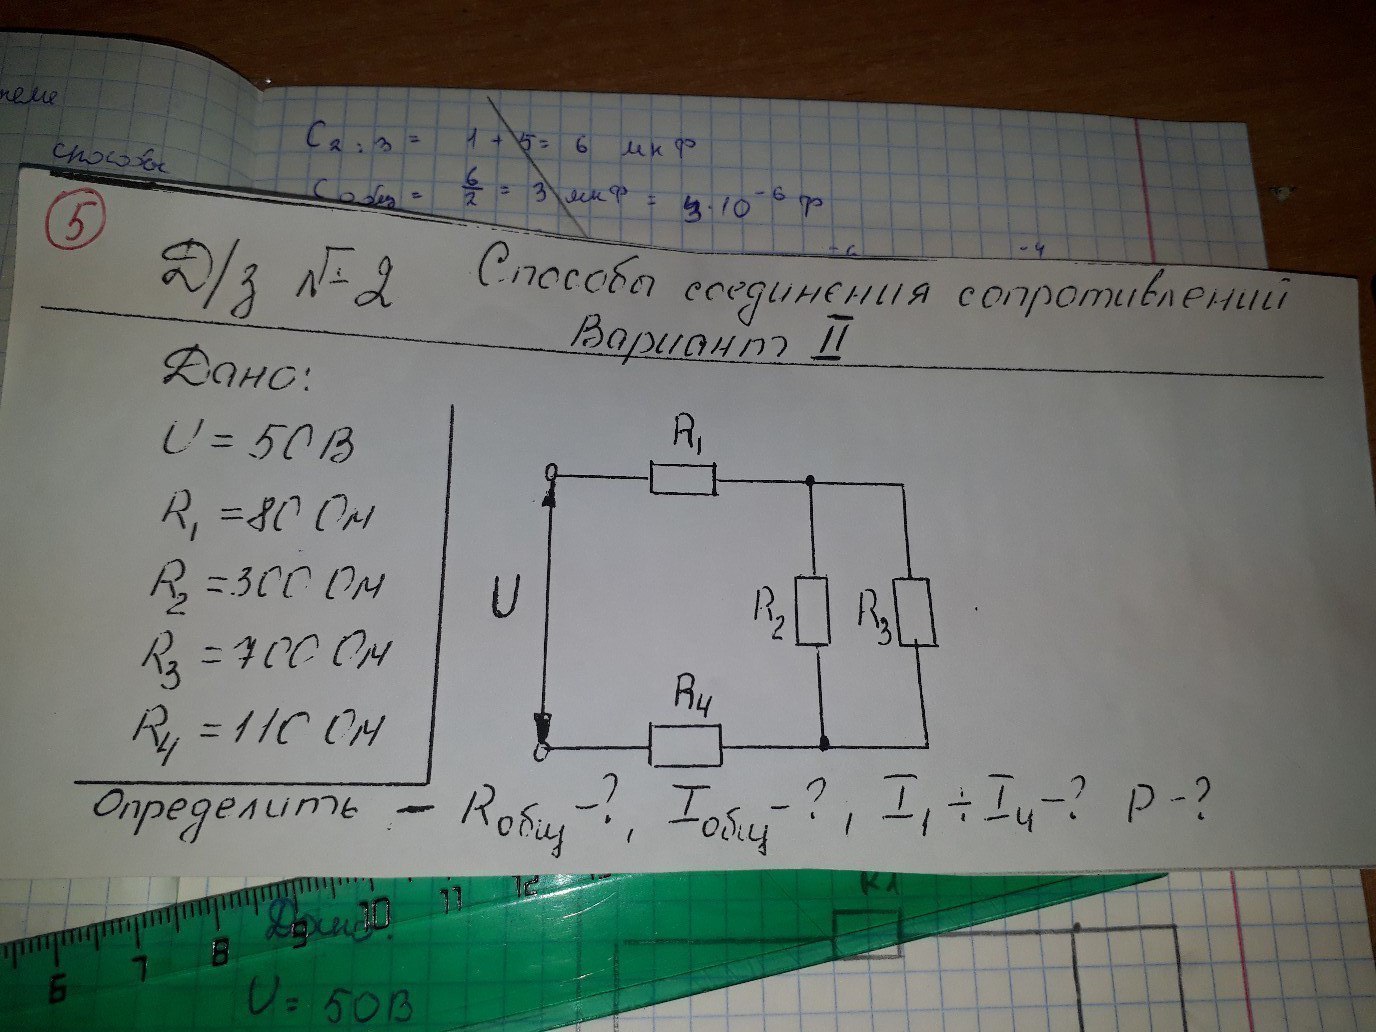 способы
C₂,₃ = 1 + 5 = 6 мкФ
Cобщ = 6/2 = 3 мкФ = 3·10⁻⁶ Ф
5
Д/з №2 Способы соединения сопротивлений
Вариант II
Дано:
U = 50 В
R₁ = 80 Ом
R₂ = 300 Ом
R₃ = 700 Ом
R₄ = 110 Ом
R₁
U
R₂
R₃
R₄
Определить – Rобщ -?, Iобщ -?, I₁ ÷ I₄ -? P -?
6 7 8 9 10 11 12
Дано:
U = 50 В